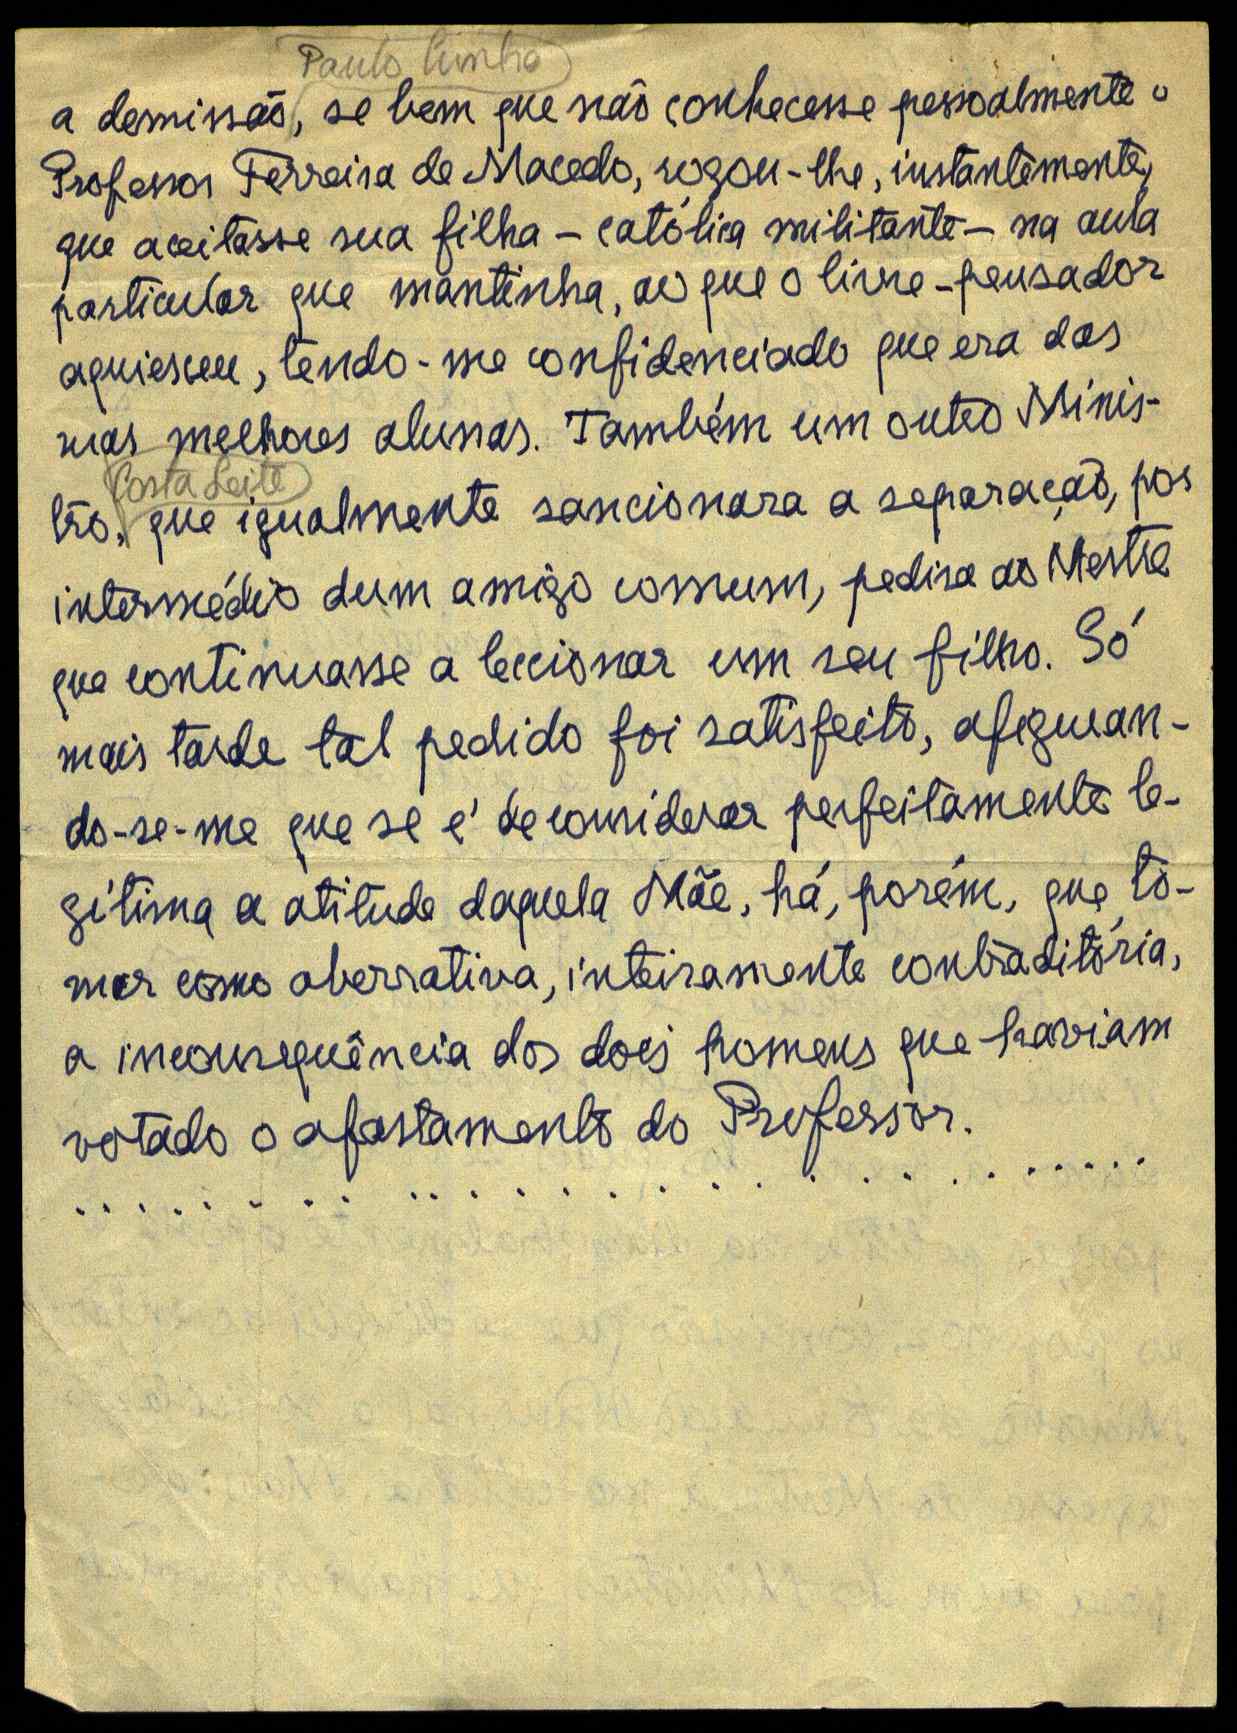 Paulo Cunha
a demissão, se bem que não conhecesse pessoalmente o
Professor Ferreira de Macedo, rogou-lhe, instantemente,
que aceitasse sua filha – católica militante – na aula
particular que mantinha, ao que o livre-pensador
aquiesceu, tendo-me confidenciado que era das
suas melhores alunas. Também um outro Minis-
Costa Leite
tro, que igualmente sancionara a separação, por
intermédio dum amigo comum, pedira ao Mestre
que continuasse a leccionar um seu filho. Só
mais tarde tal pedido foi satisfeito, afiguran-
do-se-me que se é de considerar perfeitamente le-
gítima a atitude daquela Mãe, há, porém, que to-
mar como aberrativa, inteiramente contraditória,
a inconsequência dos dois homens que haviam
votado o afastamento do Professor.
. . . . . . . . . . . . . . . . . . . . . . . . . . .